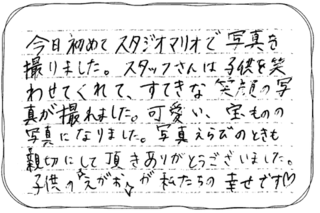 今日初めてスタジオマリオで写真を
撮りました。スタッフさんは子供を笑
わせてくれて、すてきな笑顔の写
真が撮れました。可愛い、宝ものの
写真になりました。写真えらびのときも
親切にして頂きありがとうございました。
子供の☆えがお☆が私たちの幸せです♡